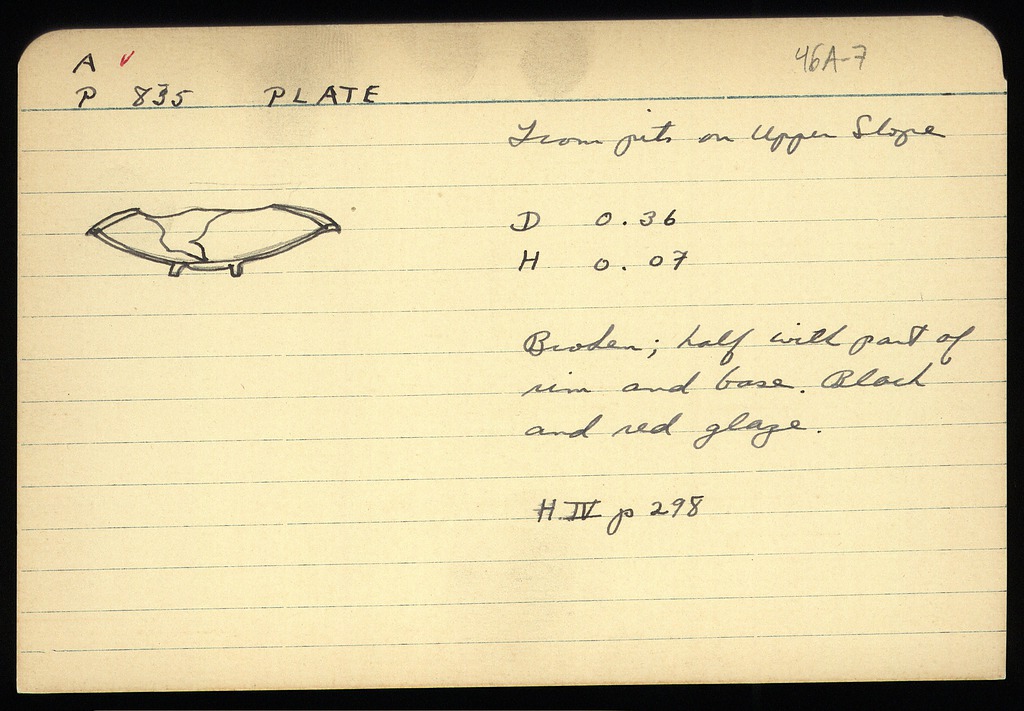 A ✓
46A-7
P 835 PLATE
From pits on Upper Slope
D 0.36
H 0.07
Broken; half with part of
rim and base. Black
and red glaze.
H. IV p 298